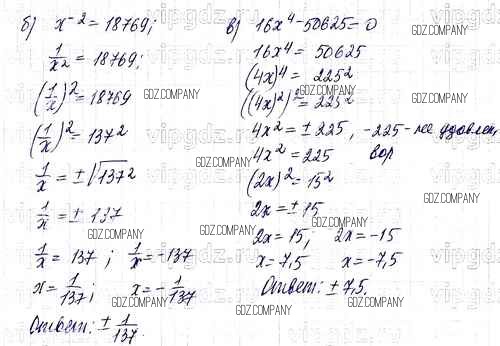 б) x⁻² = 18769;
1/x² = 18769;
(1/x)² = 18769
(1/x)² = 137²
1/x = ±√137²
1/x = ± 137
1/x = 137; 1/x = -137
x = 1/137; x = - 1/137
Ответ: ± 1/137.
в) 16x⁴ - 50625 = 0
16x⁴ = 50625
(4x)⁴ = 225²
((4x)²)² = 225²
4x² = ± 225, -225 - не удовлет
вор
4x² = 225
(2x)² = 15²
2x = ± 15
2x = 15; 2x = -15
x = 7,5 x = -7,5
Ответ: ± 7,5.
GDZ.COMPANY
GDZ.COMPANY
GDZ.COMPANY
GDZ.COMPANY
GDZ.COMPANY
GDZ.COMPANY
GDZ.COMPANY
GDZ.COMPANY
GDZ.COMPANY
GDZ.COMPANY
GDZ.COMPANY
vipgdz.ru